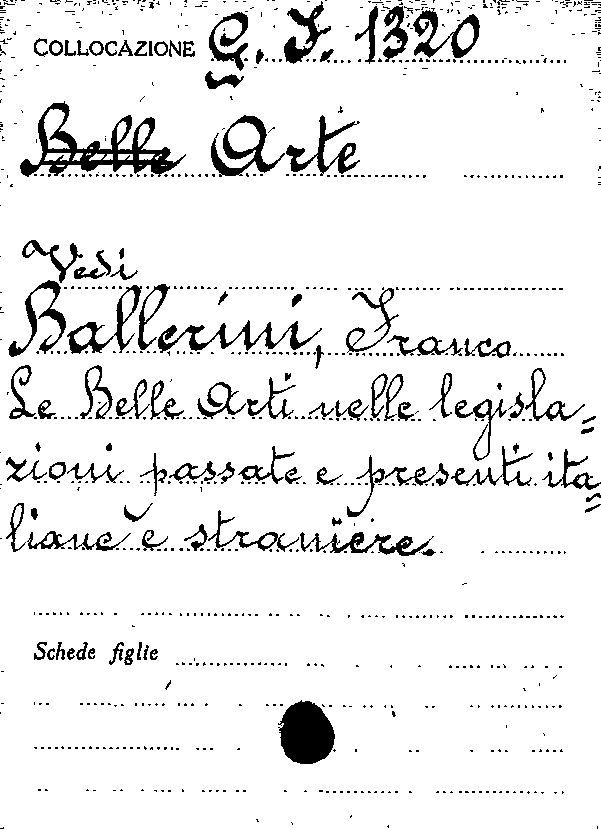 COLLOCAZIONE G. I. 1320
Belle Arte
Vedi
Ballerini, Franco
Le Belle Arti nelle legisla=
zioni passate e presenti ita=
liane e straniere.
Schede figlie